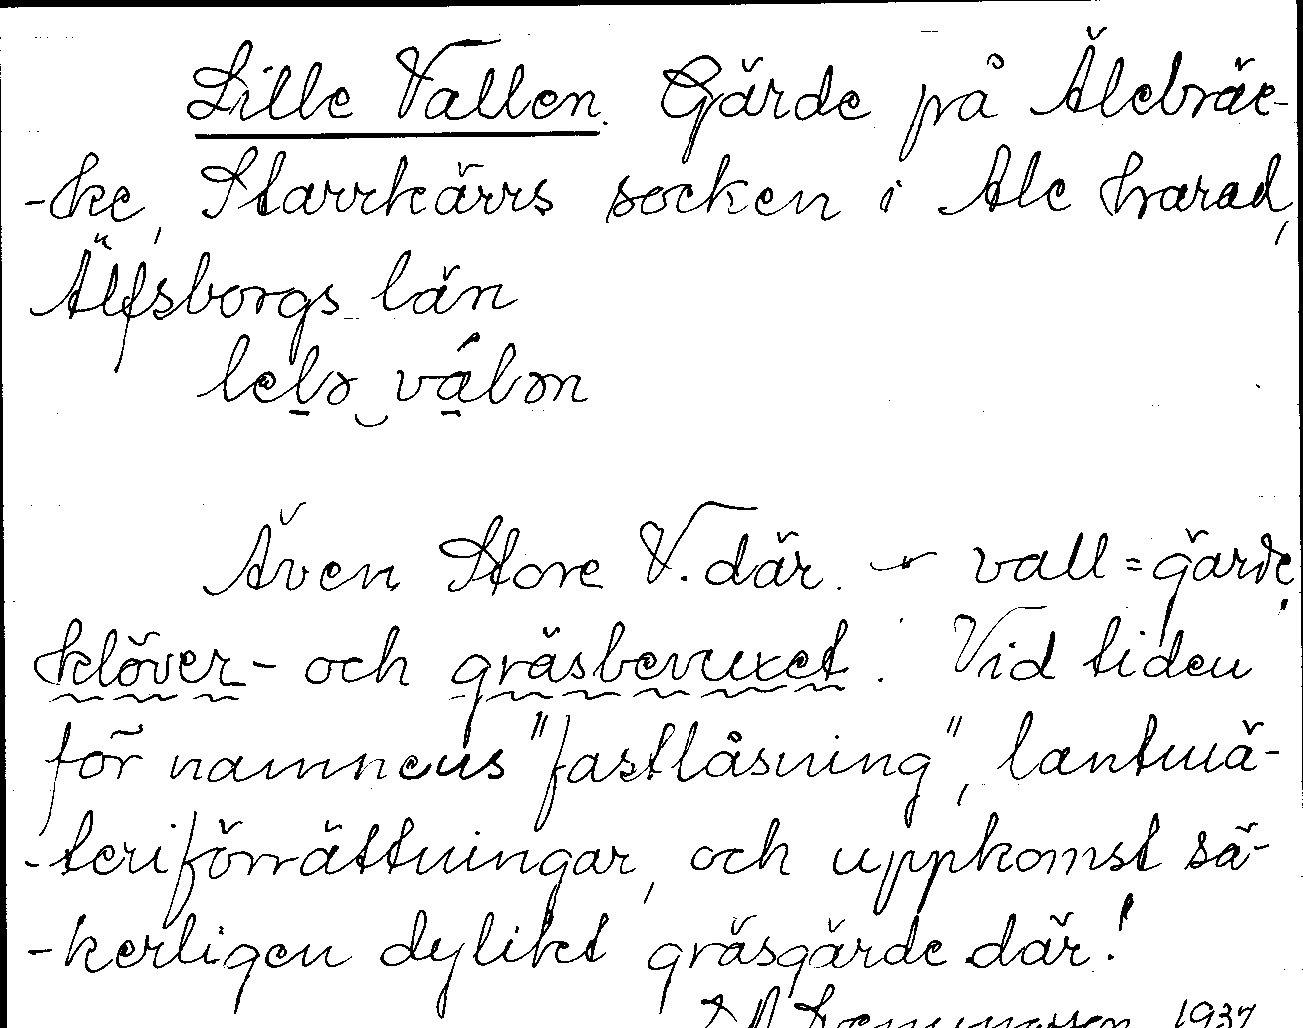 Lille Vallen. Gärde på Älebräc-
-ke, Starrkärrs socken i Ale härad,
Älfsborgs län
lelə válən
Även Store V. där. - vall = gärde,
klöver- och gräsbevuxet. Vid tiden
för namnens "fastlåsning", lantmä-
-teriförrättningar, och uppkomst sä-
-kerligen dylikt gräsgärde där!
1937